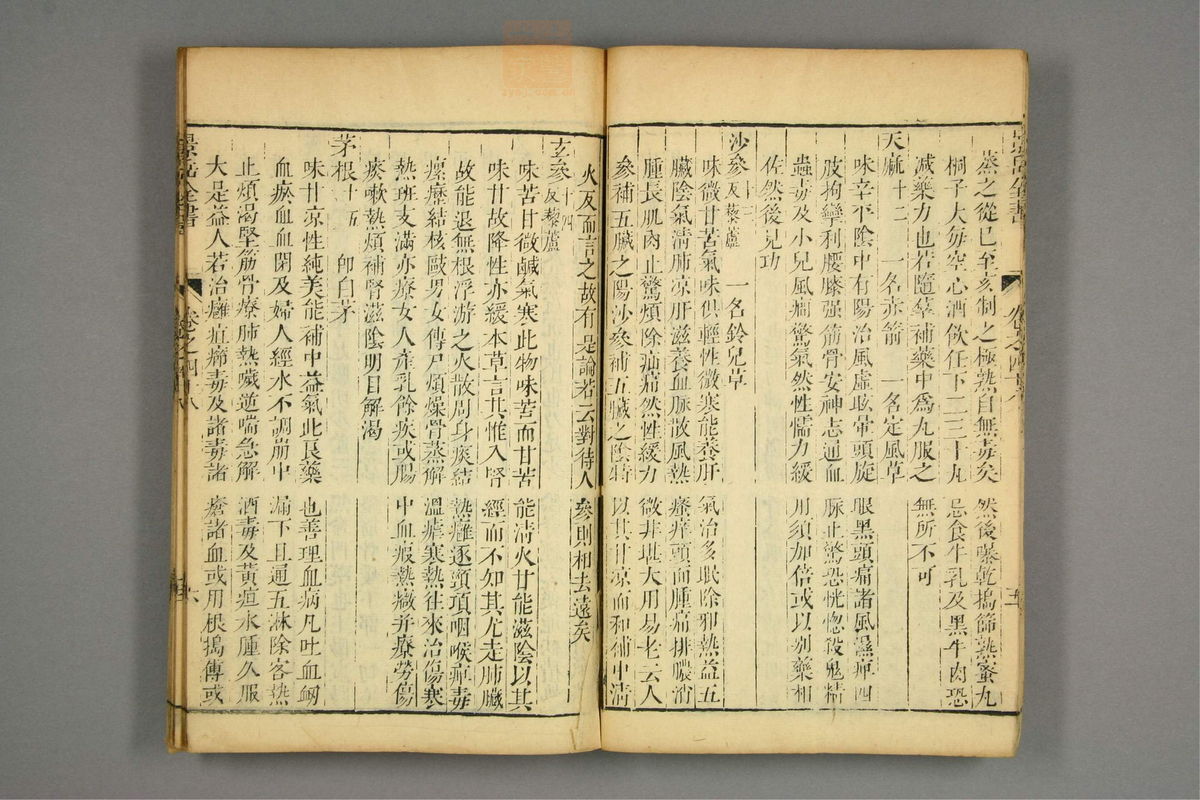 景岳全書
卷之四十八
蒸之從巳至亥制之極熟自無毒矣然後曝乾搗篩熟蜜丸
桐子大每空心酒飲任下二三十丸忌食牛乳及黑牛肉恐
減藥力也若隨羣補藥中爲丸服之無所不可
天麻十二 一名赤箭 一名定風草
味辛平陰中有陽治風虛眩暈頭旋眼黑頭痛諸風濕痺四
肢拘攣利腰膝强筋骨安神志通血脉止驚恐恍惚殺鬼精
蟲毒及小兒風癎驚氣然性懦力緩用須加倍或以别藥相
佐然後見功
沙參十三反藜蘆 一名鈴兒草
味微甘苦氣味俱輕性微寒能養肝氣治多眠除邪熱益五
臟陰氣清肺凉肝滋養血脉散風熱瘙痒頭面腫痛排膿消
腫長肌肉止驚煩除疝痛然性緩力微非堪大用易老云人
參補五臟之陽沙參補五臟之陰特以其甘凉而和補中清
火反而言之故有是論若云對待人參則相去遠矣
玄參十四反藜蘆
味苦甘微鹹氣寒此物味苦而甘苦能清火甘能滋陰以其
味甘故降性亦緩本草言其惟入腎經而不知其尤走肺臟
故能退無根浮游之火散周身痰結熱癰逐頸項咽喉痺毒
瘰癧結核歐男女傳尸煩燥骨蒸解溫瘧寒熱往來治傷寒
熱班支滿亦療女人產乳餘疾或腸中血瘕熱癥并療勞傷
痰嗽熱煩補腎滋陰明目解渴
茅根十五 卽白茅
味甘凉性純美能補中益氣此良藥也善理血病凡吐血衂
血瘀血血閉及婦人經水不調崩中漏下且通五淋除客熱
止煩渴堅筋骨療肺熱噦逆喘急解酒毒及黃疸水腫久服
大是益人若治癰疽癤毒及諸毒諸瘡諸血或用根搗傅或
景岳全書
卷之四十八